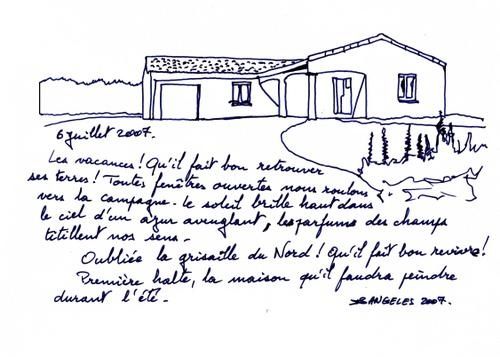 6 juillet 2007.
Les vacances! Qu'il fait bon retrouver
ses terres! Toutes fenêtres ouvertes nous roulons
vers la campagne. le soleil brille haut dans
le ciel d'un azur aveuglant, les parfums des champs
titillent nos sens.
Oubliée la grisaille du Nord! Qu'il fait bon revivre!
Première halte, la maison qu'il faudra peindre
durant l'été.
ANGELES 2007.